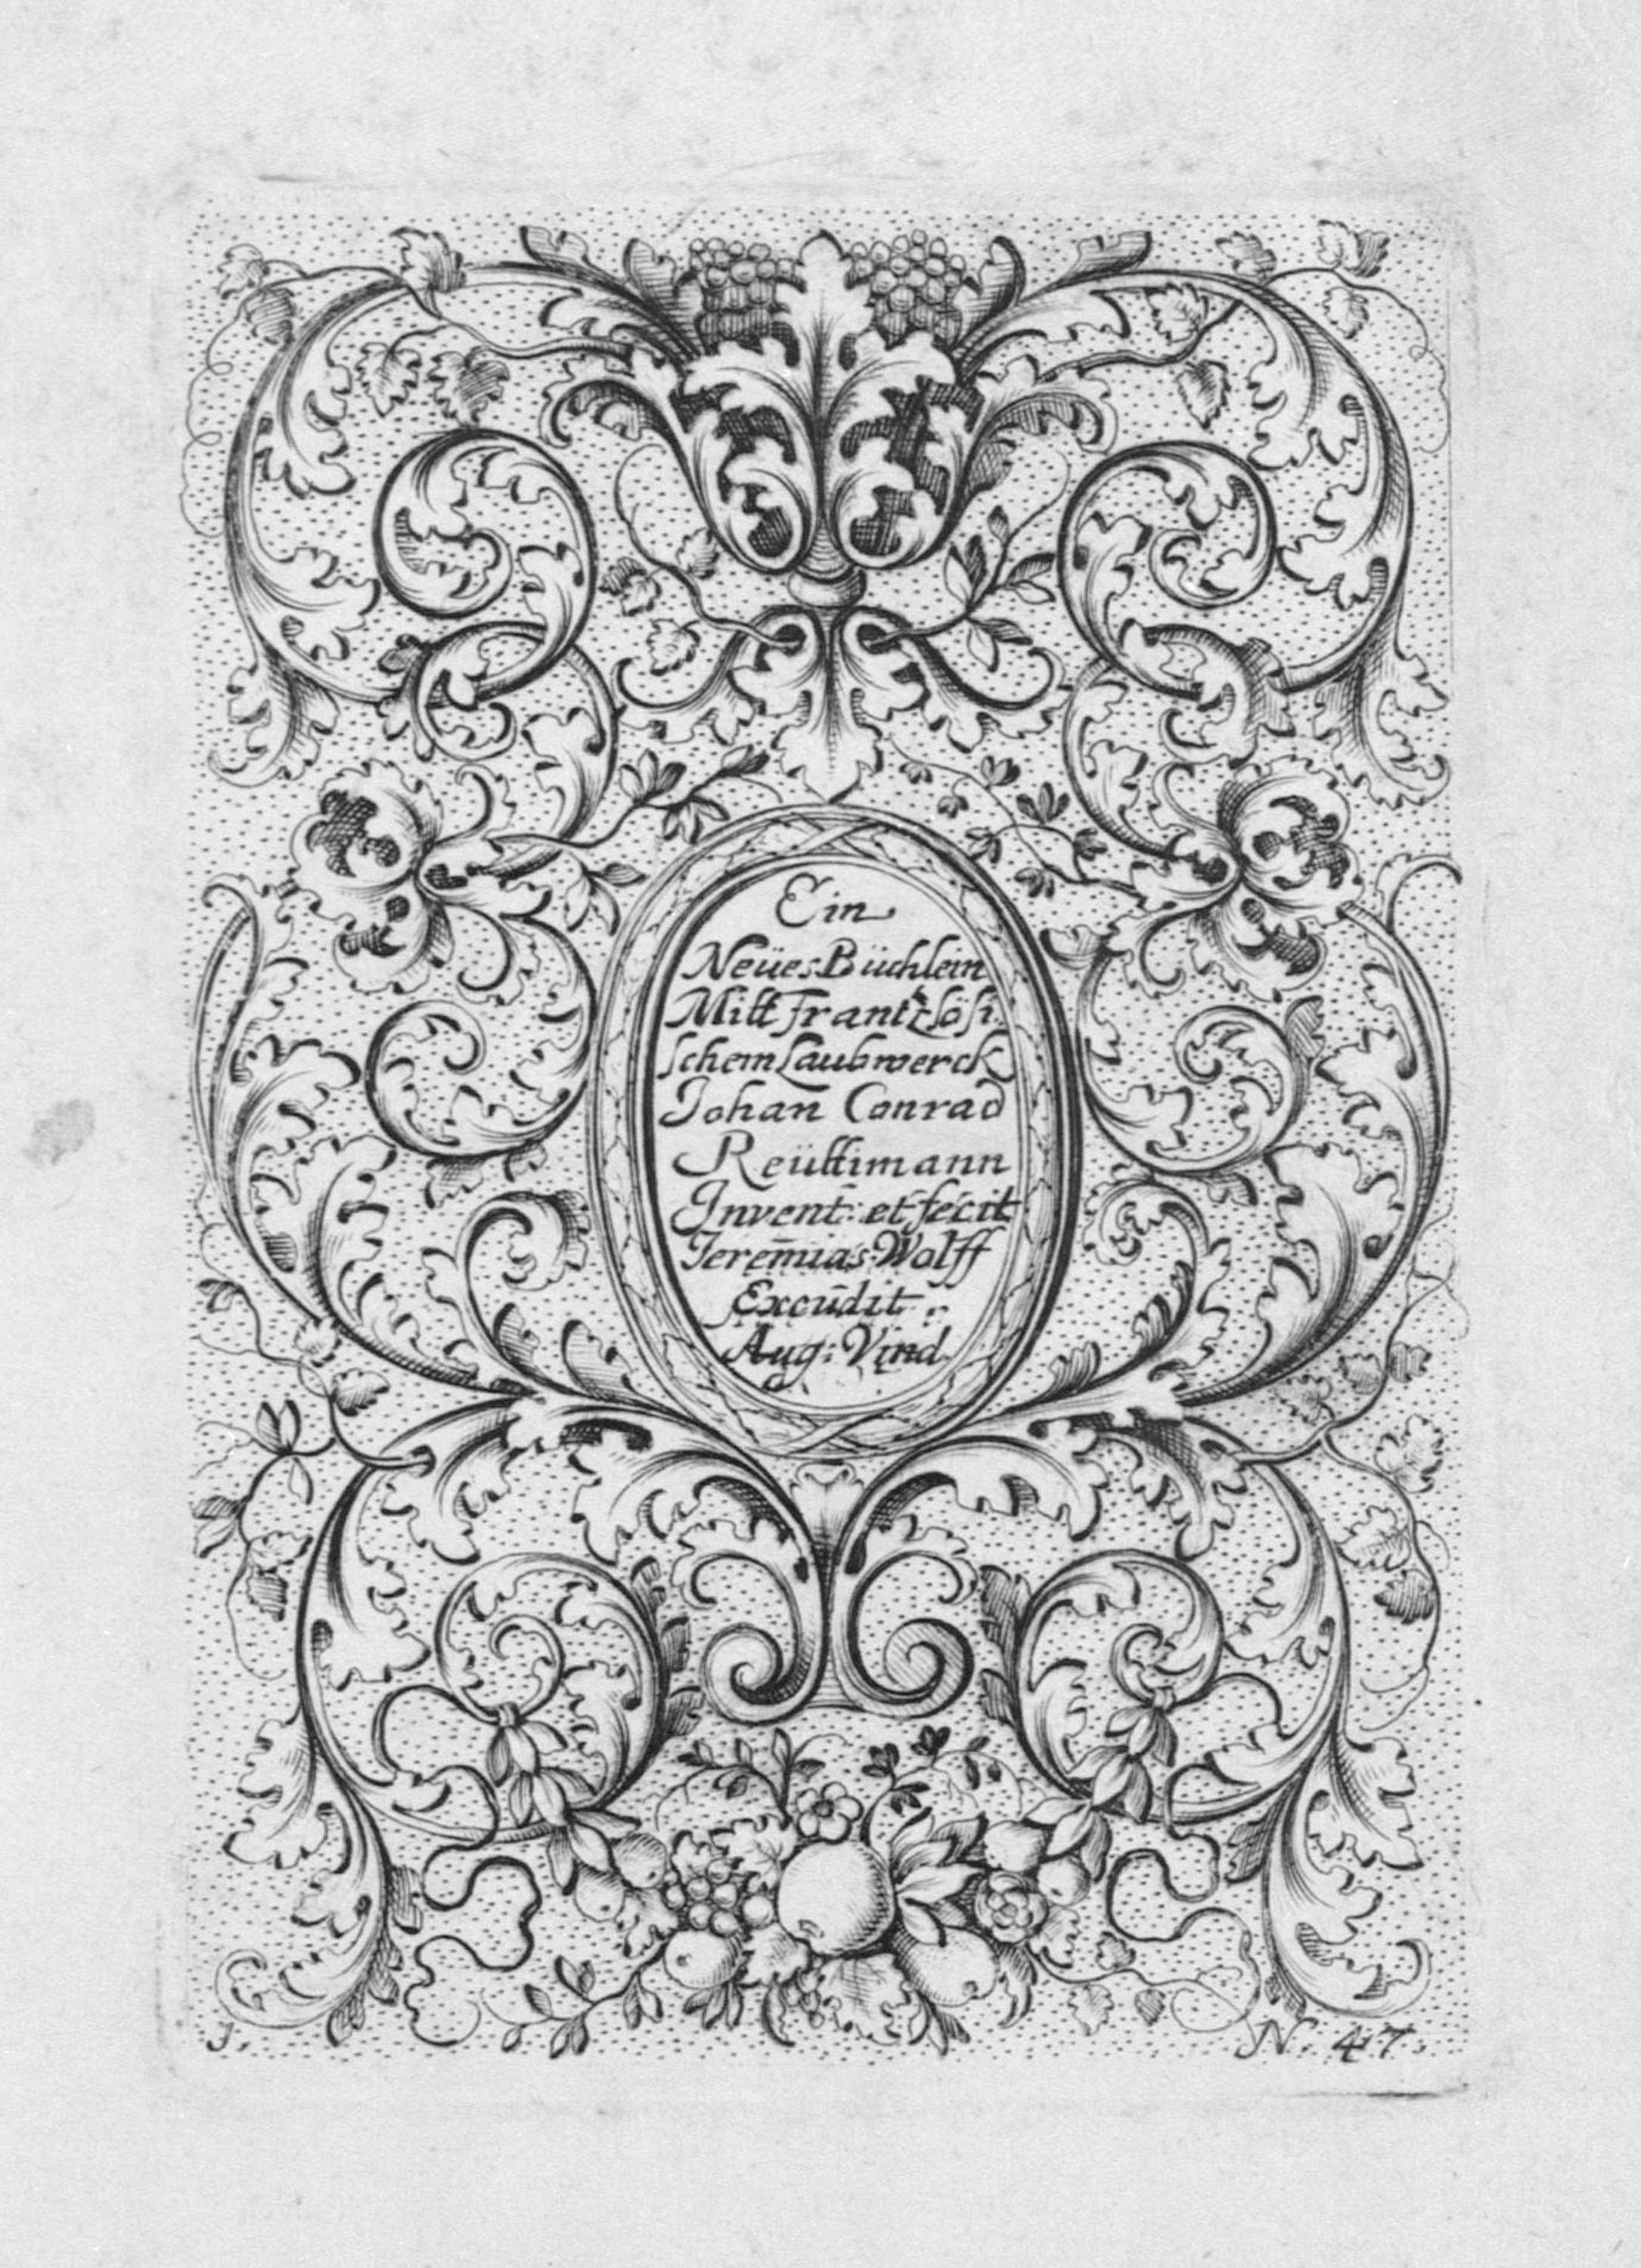 Ein
Neües Büchlein
Mitt Frantzösi
schem Laubwerck
Johan Conrad
Reüttimann
Invent: et fecit
Jeremias Wolff
Excudit.
Aug: Vind.
1.
N. 47.